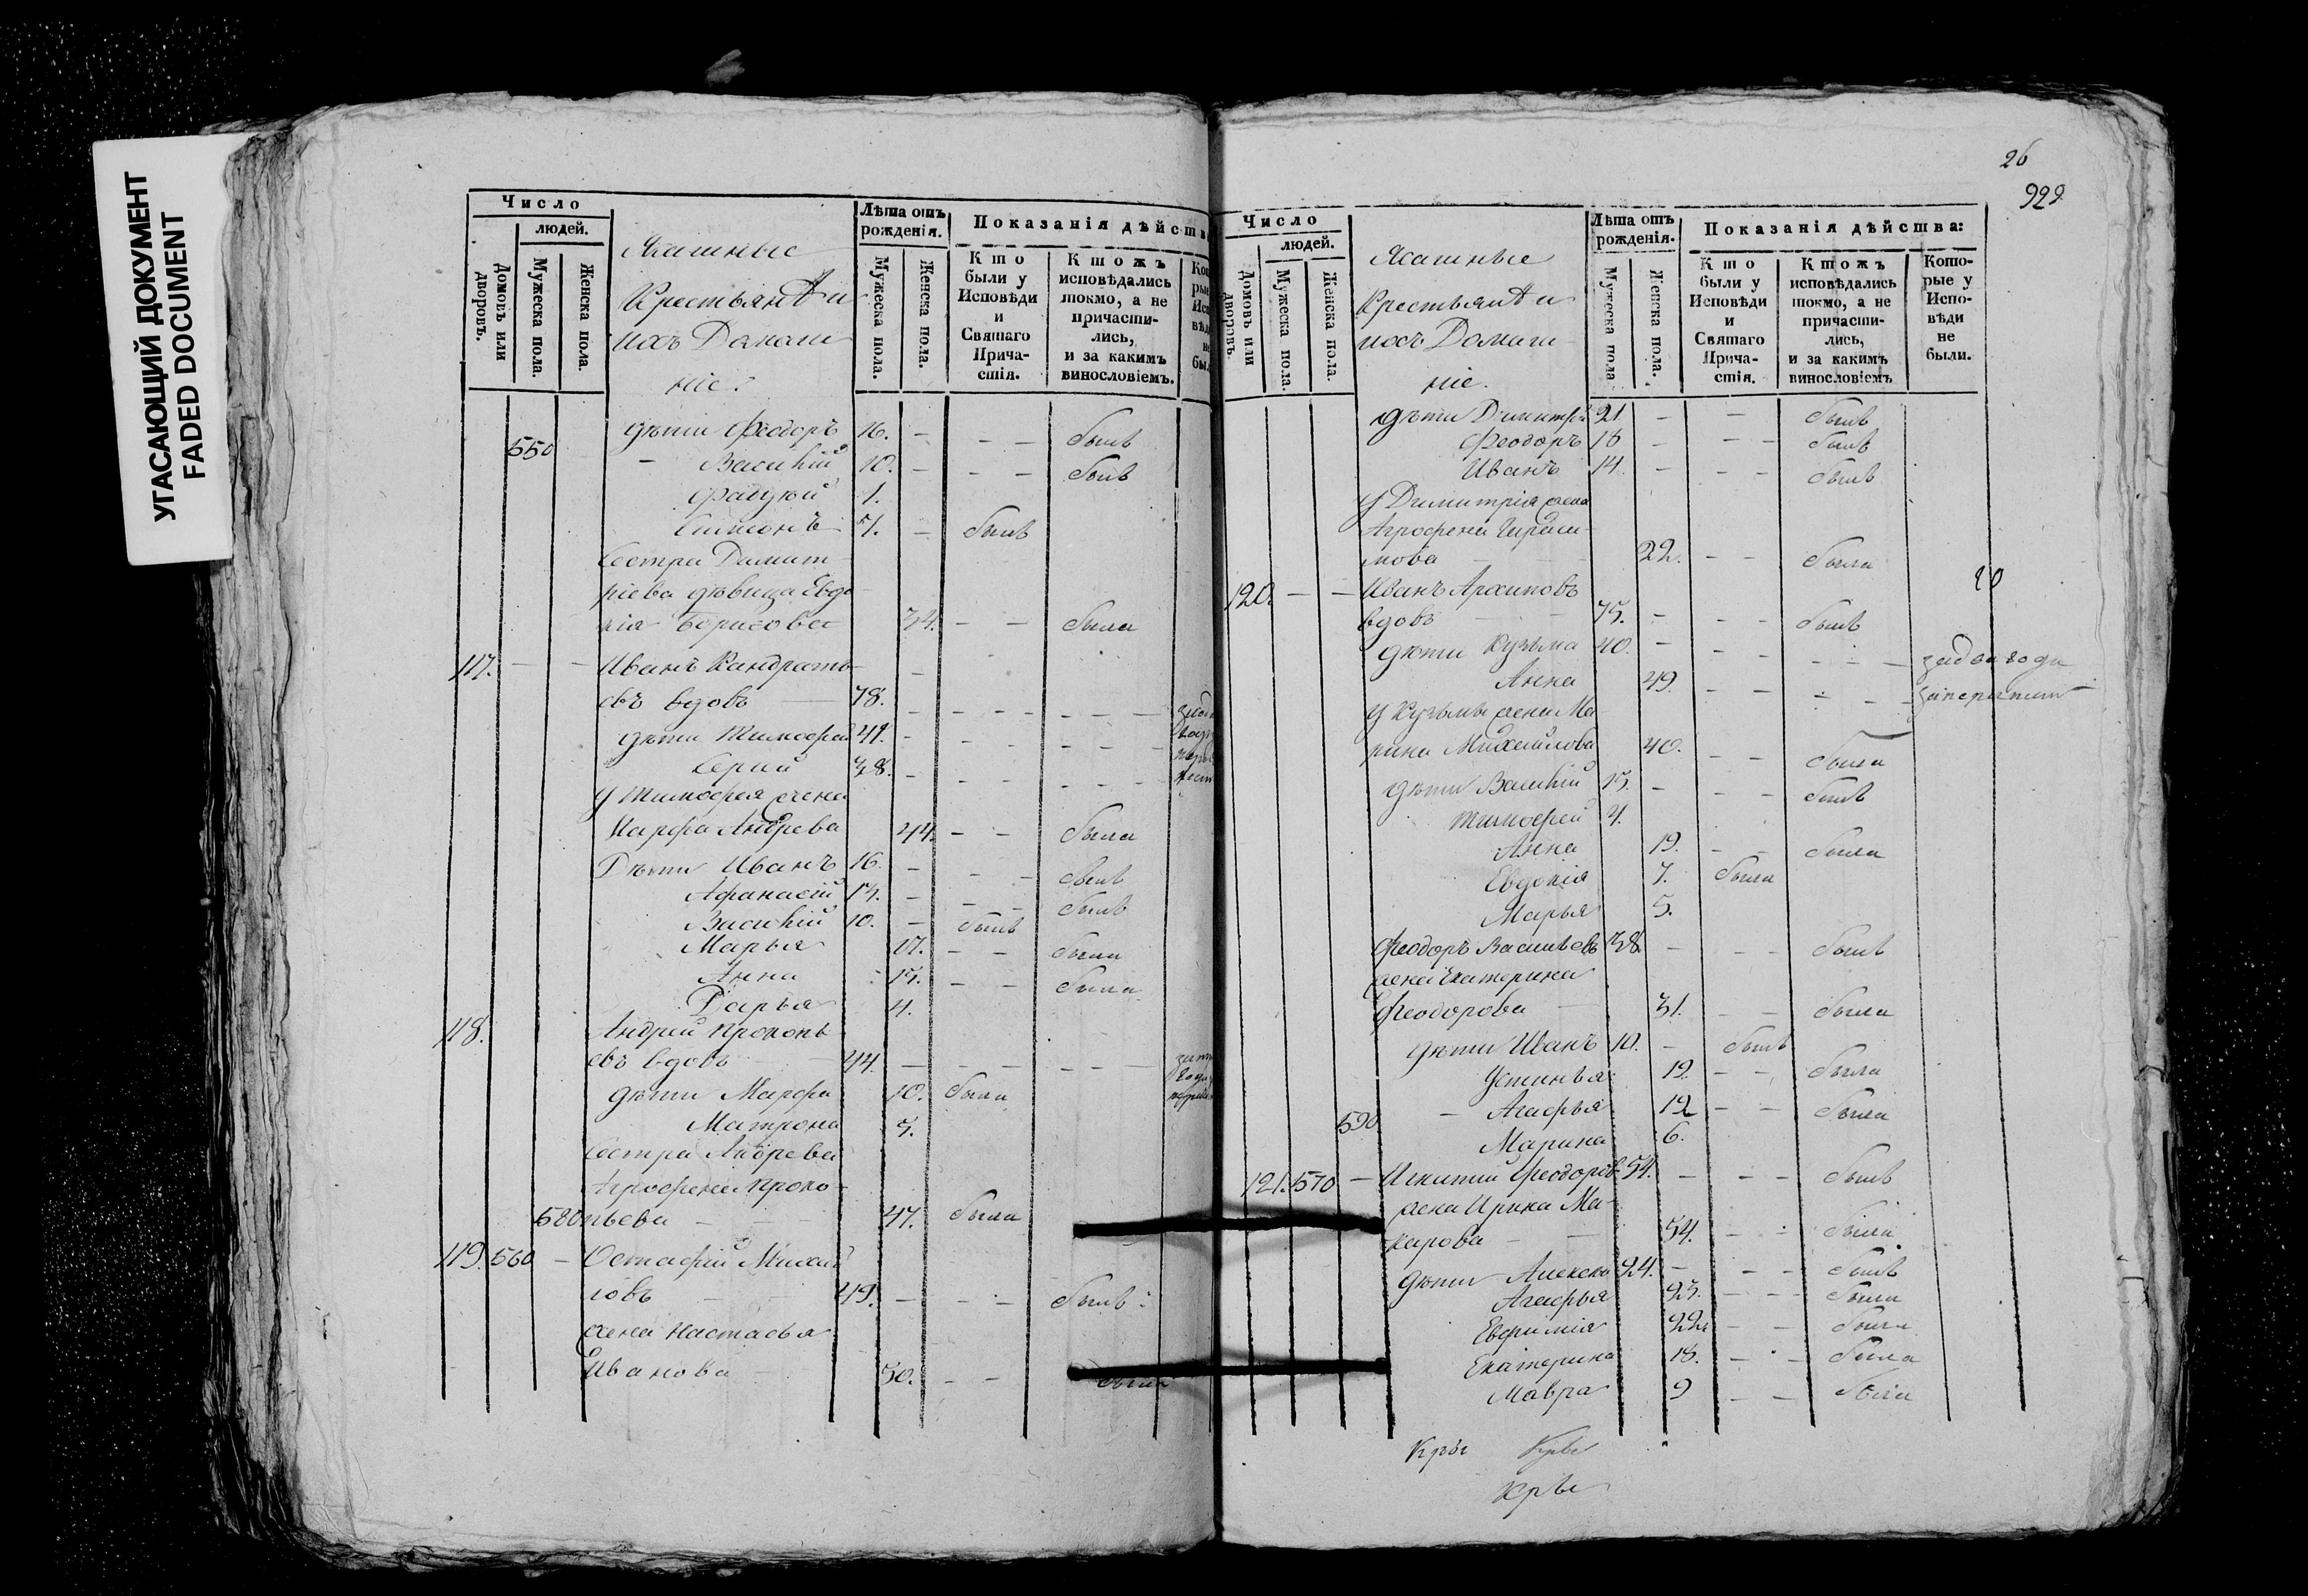 УГАСАЮЩИЙ ДОКУМЕНТ
FADED DOCUMENT
Число
людей.
Домовъ или дворовъ.
Мужеска пола.
Женска пола.
Ясашные
Крестьянѣ и
ихъ Домаш
ніе.
Лѣта отъ рожденія.
Мужеска пола.
Женска пола.
Показанія дѣйств
Кто были у Исповѣди и Святаго Прича-стія.
Ктожъ исповѣдались токмо, а не причасти-лись, и за какимъ винословіемъ.
550 дѣти Феодоръ 16. - - - былъ
- Василій 10. - - - былъ
1.
Симонъ 5. - былъ
Сестра Димит
ріева дѣвица Евдо
кія Борисова 34. - - была
117. - - Иванъ Кандрать
евъ вдовъ 78. -
дѣти Тимофей 41. -
Сергій 38. -
У Тимофея жена
Марфа Андрева 44. - - была
Дѣти Иванъ 16. - - - былъ
Афанасій 13. - - - былъ
Василій 10. - былъ
Марья 17. - - была
Анна 15. - - была
Дарья 4.
118. Андрей Прокопь
евъ вдовъ 44. -
дѣти Марфа 10. была
Матрона 5.
Сестра Андрева
Агрофена Проко
580 пьева 47. была
119. 560 - Остафій Михай
ловъ 49. - - - былъ
жена Настасья
Иванова 50. - - была
26
929
Число
людей.
Домовъ или дворовъ.
Мужеска пола.
Женска пола.
Ясашные
Крестьянѣ и
ихъ Домаш
ніе.
Лѣта отъ рожденія.
Мужеска пола
Женска пола.
Показанія дѣйства:
Кто были у Исповѣди и Святаго Прича-стія.
Ктожъ исповѣдались токмо, а не причасти-лись, и за какимъ винословіемъ
Кото-рые у Испо-вѣди не были.
дѣти Димитрій 21 - - былъ
Феодоръ 18 - - - былъ
Иванъ 14. - - - былъ
У Димитрія жена
Агрофена Гираси
мова 22. - - была
120. - - Иванъ Архиповъ
вдовъ 75. - - - былъ
дѣти Кузьма 40. - - - - - за два года
Анна 49. - - - - за
У Кузьмы жена Ма
рина Михайлова 40. - - была
дѣти Василій 15. - - - былъ
Тимофей 4.
Анна 19. - - была
Евдокія 7. была
Марья 5.
Феодоръ Васильевъ 38. - - - былъ
жена Екатерина
Феодорова 31. - - была
дѣти Иванъ 10. - былъ
Устинья 19. - - была
590 - Агафья 12 - - была
Марина 6.
121. 570 - Игнатий Феодоровъ 54. - - - былъ
жена Ирина Ма
карова 54. - - была
дѣти Алексей 24. - - - былъ
Агафья 23. - - - была
Евфимія 22. - - была
Екатерина 18. - - - была
Мавра 9 - - была